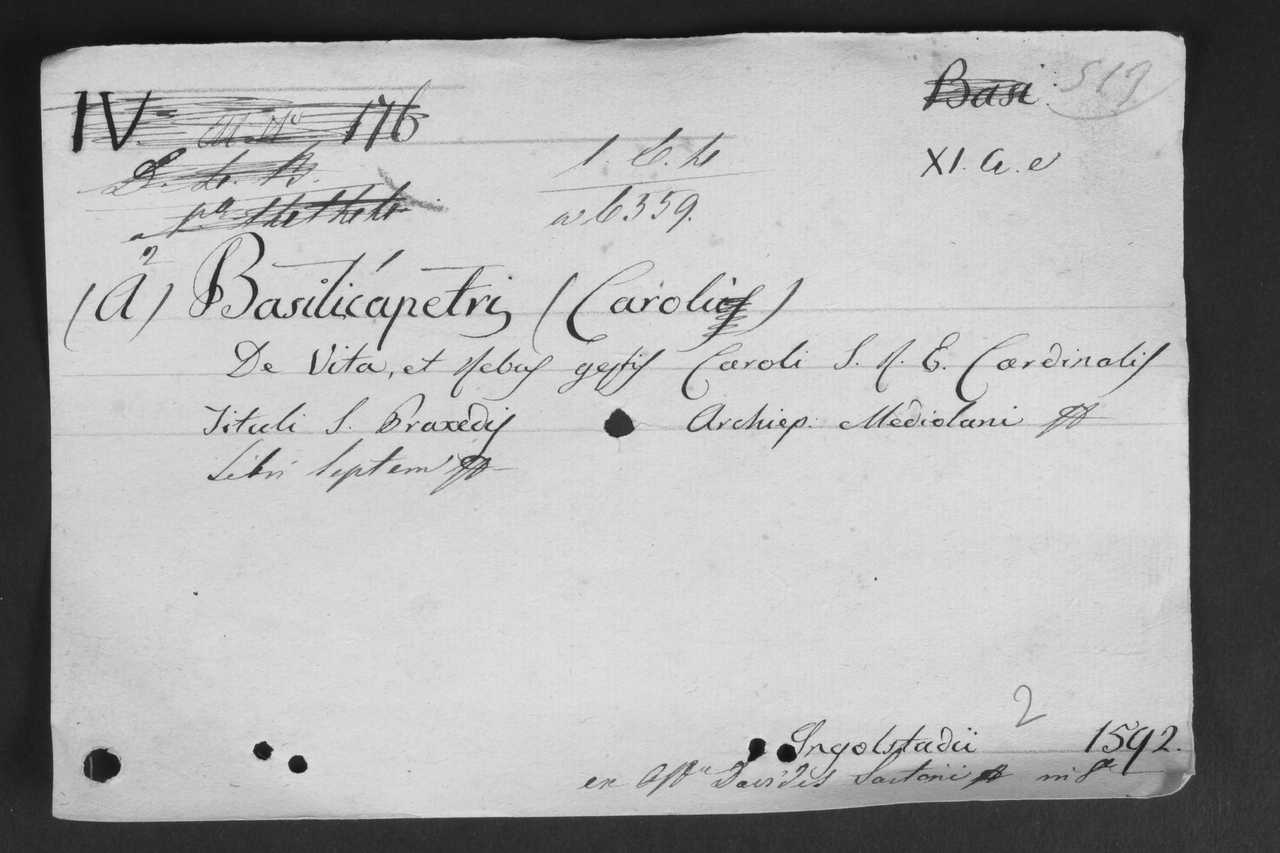 IV. 176
Basi. 517
XI. a. e
D. L. B.
a 6359.
(a²) Basilicapetri (Caroli)
De Vita, et Rebus gestis Caroli S. R. E. Cardinalis
Tituli S. Praxedis Archiep. Mediolani
Libri septem
2
Ingolstadii 1592.
ex Offna Davidis Sartorii in 8°